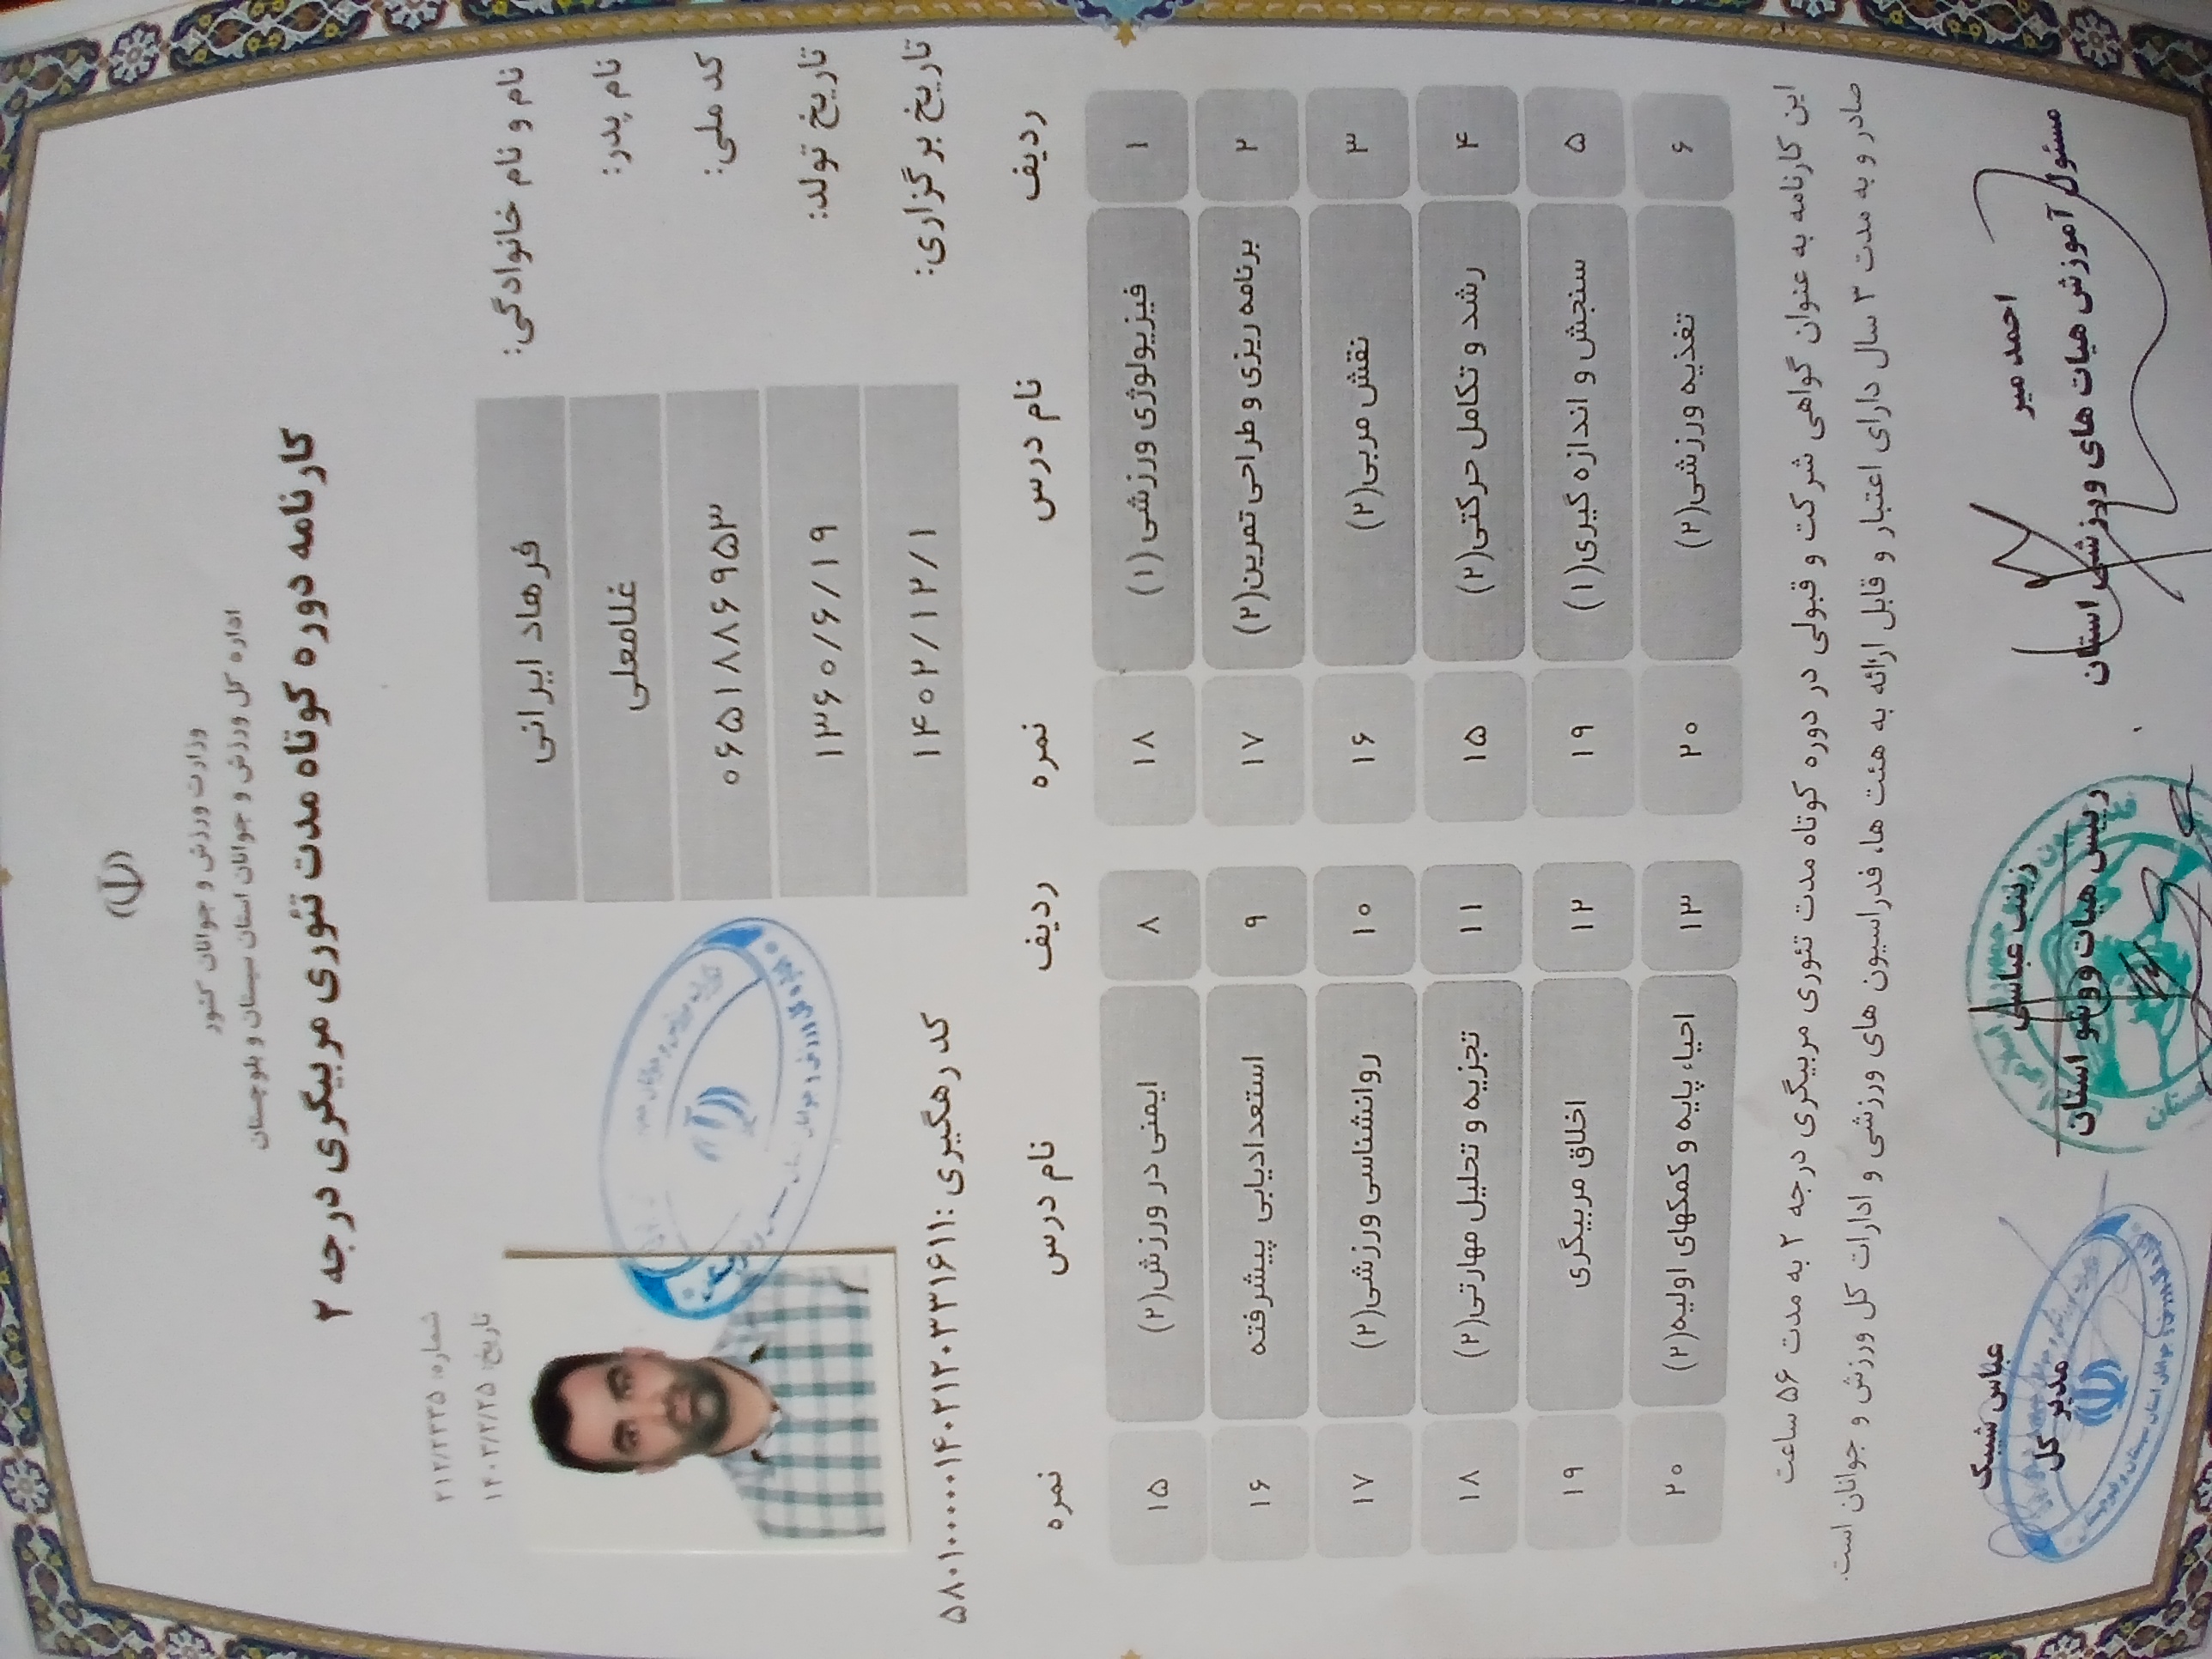 وزارت ورزش و جوانان کشور
اداره کل ورزش و جوانان استان سیستان و بلوچستان
کارنامه دوره کوتاه مدت تئوری مربیگری درجه ۲
شماره: ۲۱۲/۲۲۳۵
تاریخ: ۱۴۰۳/۲/۲۵
نام و نام خانوادگی: فرهاد ایرانی
نام پدر: غلامعلی
کد ملی: ۰۶۵۱۸۸۶۹۵۳
تاریخ تولد: ۱۳۶۰/۶/۱۹
تاریخ برگزاری: ۱۴۰۲/۱۲/۱
کد رهگیری :۵۸۰۱۰۰۰۰۰۱۴۰۲۱۲۰۳۳۱۶۱۱
ردیف نام درس نمره ردیف نام درس نمره
۱ فیزیولوژی ورزشی (۱) ۱۸ ۸ ایمنی در ورزش(۲) ۱۵
۲ برنامه ریزی و طراحی تمرین(۲) ۱۷ ۹ استعدادیابی پیشرفته ۱۶
۳ نقش مربی(۲) ۱۶ ۱۰ روانشناسی ورزشی(۲) ۱۷
۴ رشد و تکامل حرکتی(۲) ۱۵ ۱۱ تجزیه و تحلیل مهارتی(۲) ۱۸
۵ سنجش و اندازه گیری(۱) ۱۹ ۱۲ اخلاق مربیگری ۱۹
۶ تغذیه ورزشی(۲) ۲۰ ۱۳ احیاء پایه و کمکهای اولیه(۲) ۲۰
این کارنامه به عنوان گواهی شرکت و قبولی در دوره کوتاه مدت تئوری مربیگری درجه ۲ به مدت ۵۶ ساعت
صادر و به مدت ۳ سال دارای اعتبار و قابل ارائه به هئت ها، فدراسیون های ورزشی و ادارات کل ورزش و جوانان است.
احمد میر
مسئول آموزش هیات های ورزشی استان
زینب عباسی
رییس هیات ووشو استان
عباس شیبک
مدیر کل